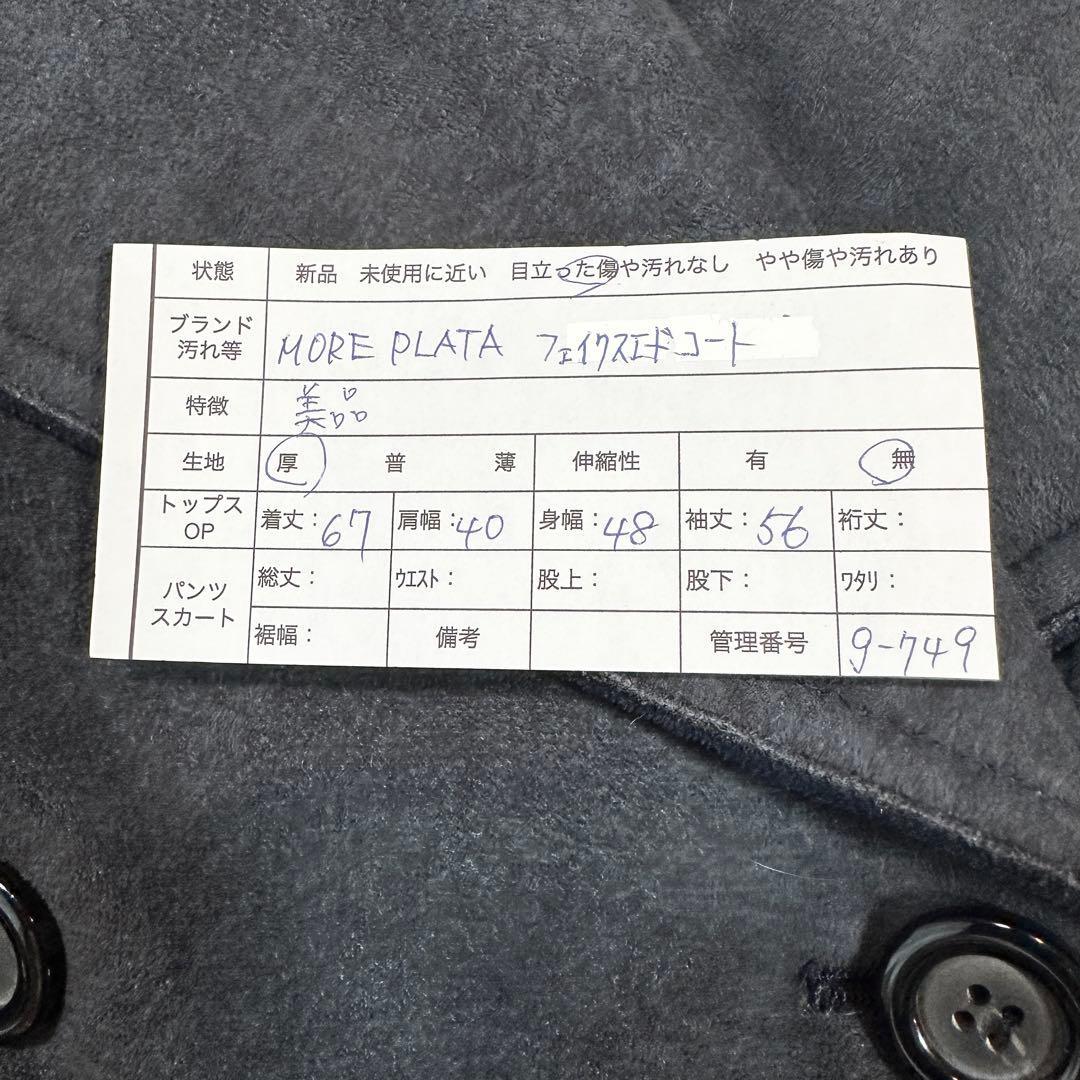 状態 新品 未使用に近い 目立った傷や汚れなし やや傷や汚れあり
ブランド
汚れ等 MORE PLATA フェイクスエドコート
特徴 美品
生地 厚 普 薄 伸縮性 有 無
トップス
OP 着丈：67 肩幅：40 身幅：48 袖丈：56 裄丈：
パンツ
スカート 総丈： ウエスト： 股上： 股下： ワタリ：
裾幅： 備考 管理番号 9-749